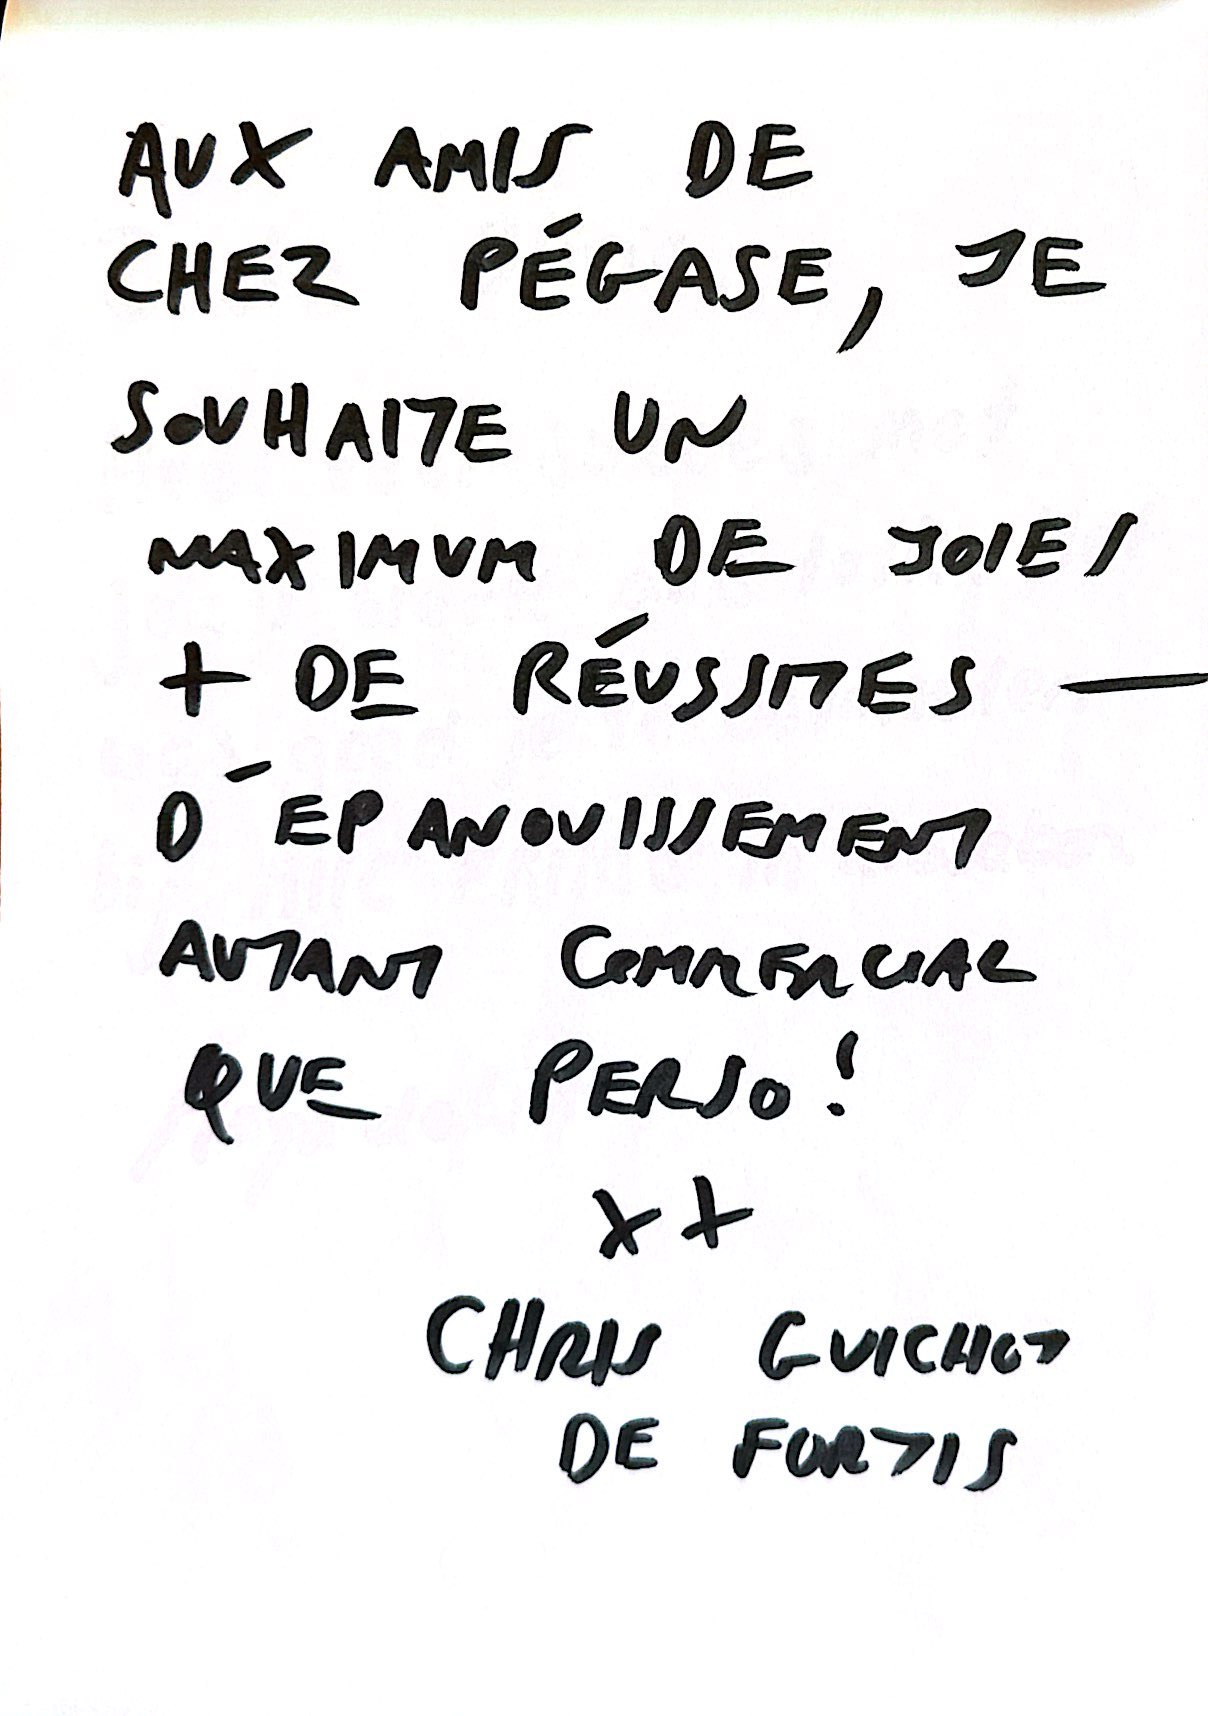 AUX AMIS DE
CHEZ PÉGASE, JE
SOUHAITE UN
MAXIMUM DE JOIES
+ DE RÉUSSITES —
D'ÉPANOUISSEMENT
AUTANT COMMERCIAL
QUE PERSO!
XX
CHRIS GUICHOT
DE FORTIS